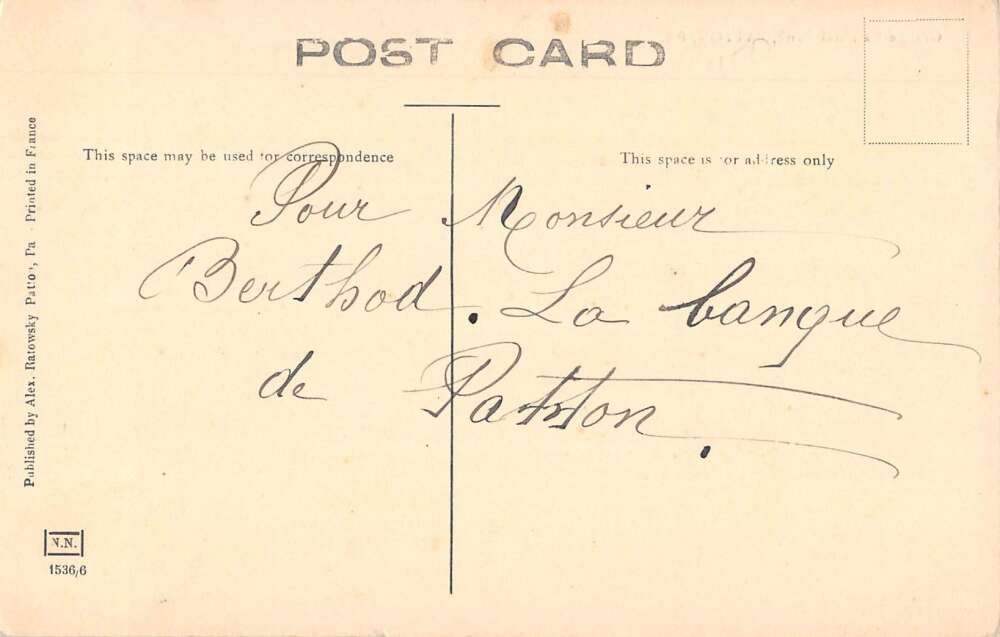 POST CARD
This space may be used for correspondence
This space is for address only
Pour Monsieur
Berthod. La banque
de Patton.
Published by Alex. Ratowsky Patton, Pa - Printed in France
N.N.
1536/6